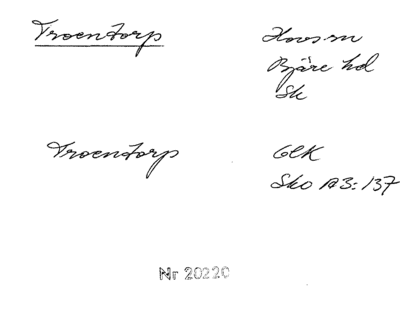 Troentorp
Hovs sn
Bjäre hd
Sk
Troentorp
GEK
Sko B3:137
Nr 20220